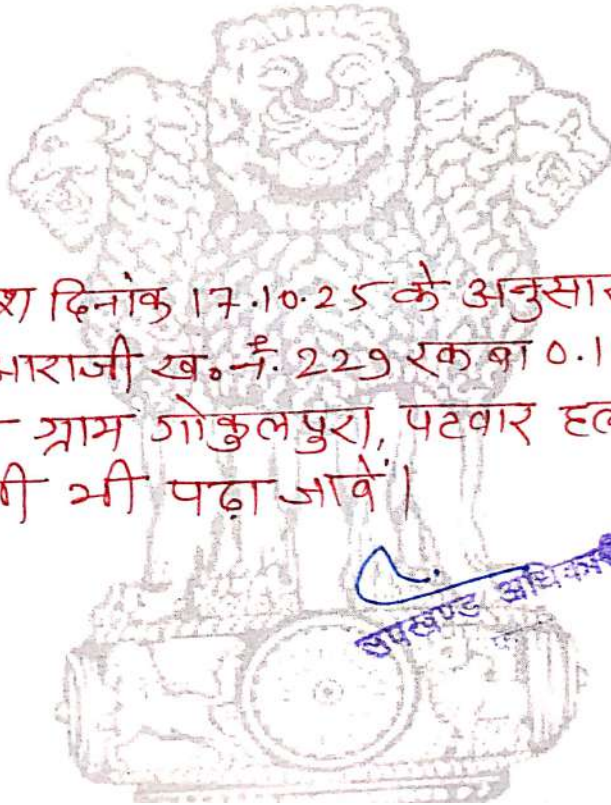 दिनांक 17.10.25 के अनुसार
आराजी ख.नं. 229 रकबा 0.1
ग्राम गोकुलपुरा, पटवार
भी पढ़ा जावें।
उपखण्ड अधिकारी